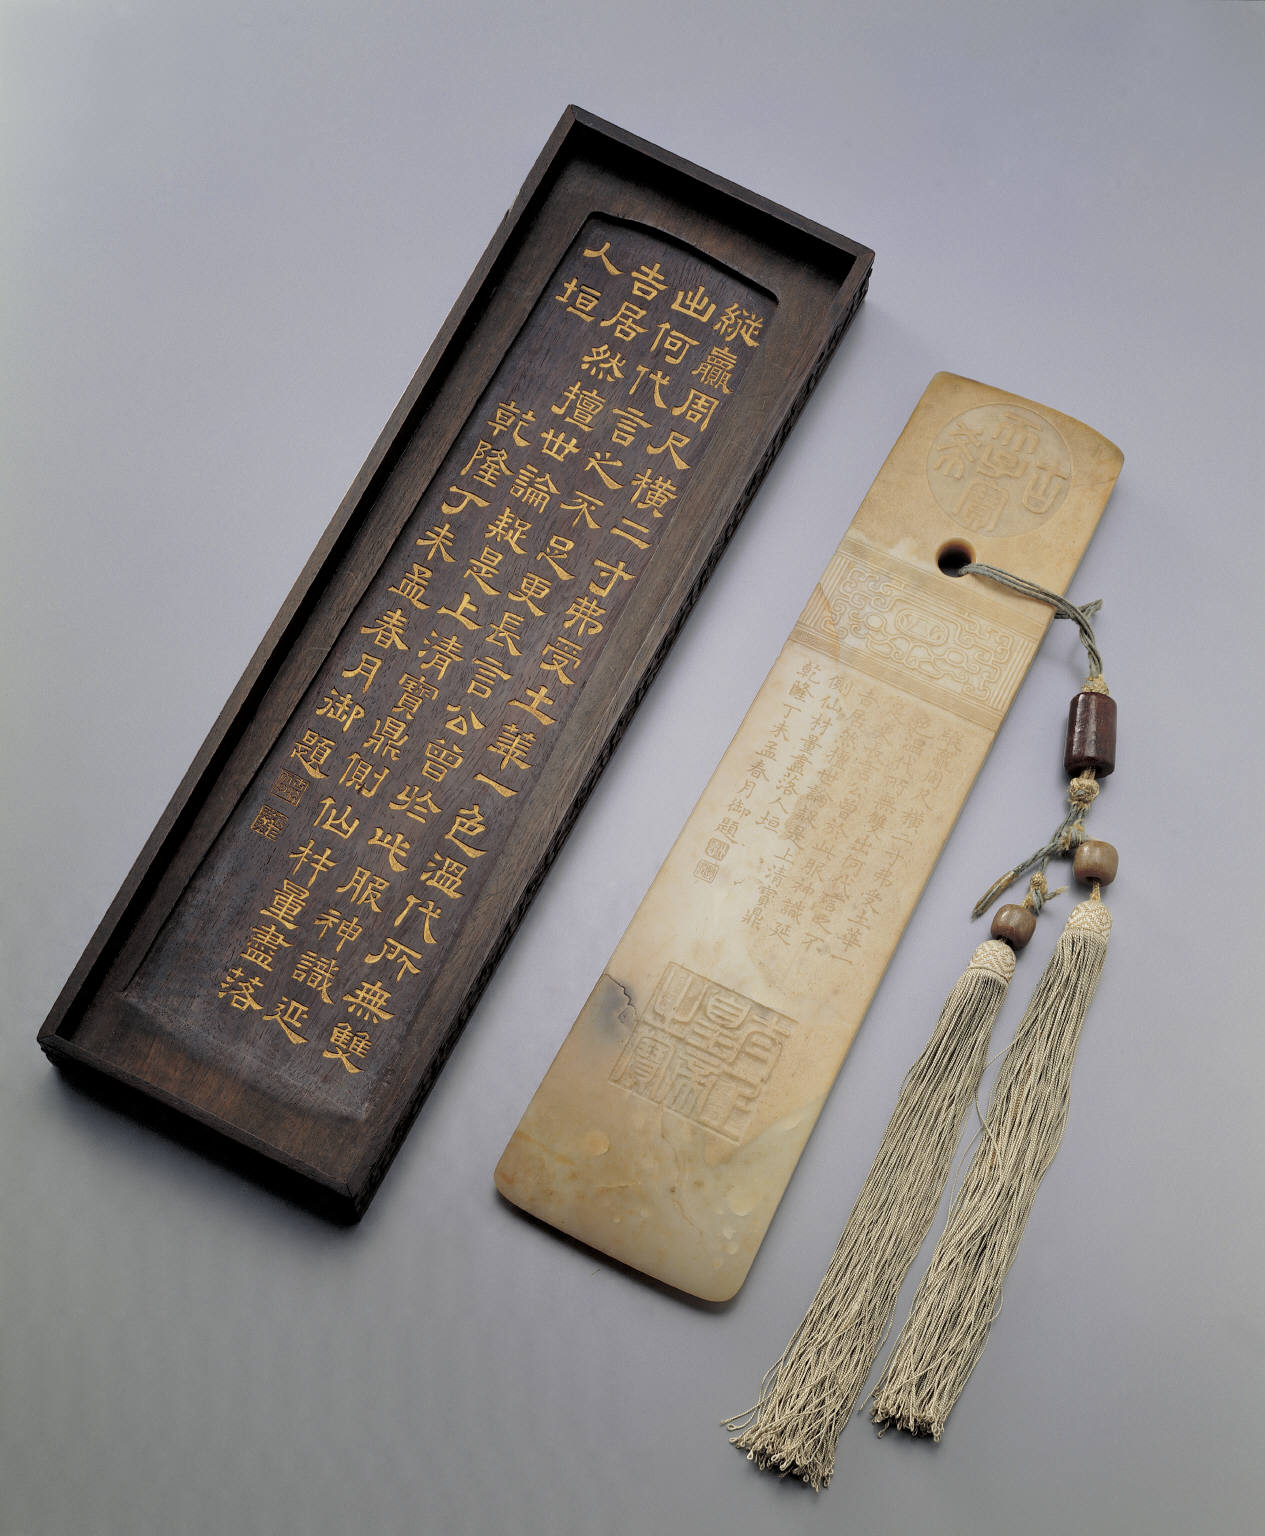 縱贏周尺橫二寸弗受土華一色溫代所無雙
出何代言之不足更長言公曾於此服神識延
吉居然擅世論疑是上清寶鼎側仙材量盡落
人垣
乾隆丁未孟春月御題
縱贏周尺橫二寸弗受土華一
色溫代所無雙出何代言之不
足更長言公曾於此服神識延
吉居然擅世論疑是上清寶鼎
側仙材量盡落人垣
乾隆丁未孟春月御題
太上
皇帝
之寶